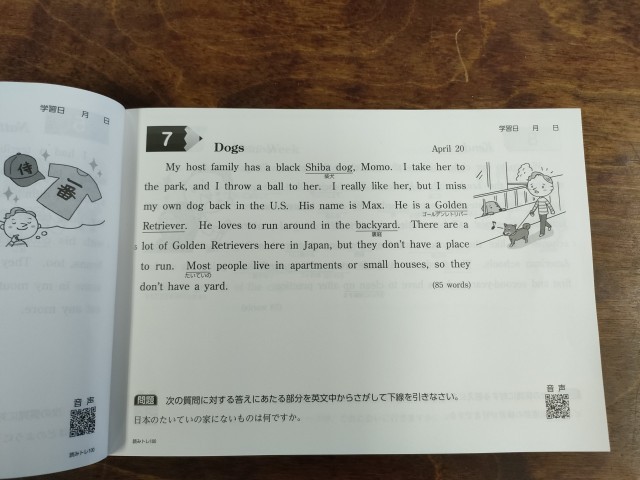 学習日 月 日
侍
一番
音声
学習日 月 日
7
Dogs
April 20
My host family has a black Shiba dog, Momo. I take her to
柴犬
the park, and I throw a ball to her. I really like her, but I miss
my own dog back in the U.S. His name is Max. He is a Golden
ゴールデンレトリバー
Retriever. He loves to run around in the backyard. There are a
裏庭
lot of Golden Retrievers here in Japan, but they don't have a place
to run. Most people live in apartments or small houses, so they
たいていの
don't have a yard.
(85 words)
問題 次の質問に対する答えにあたる部分を英文中からさがして下線を引きなさい。
日本のたいていの家にないものは何ですか。
音声